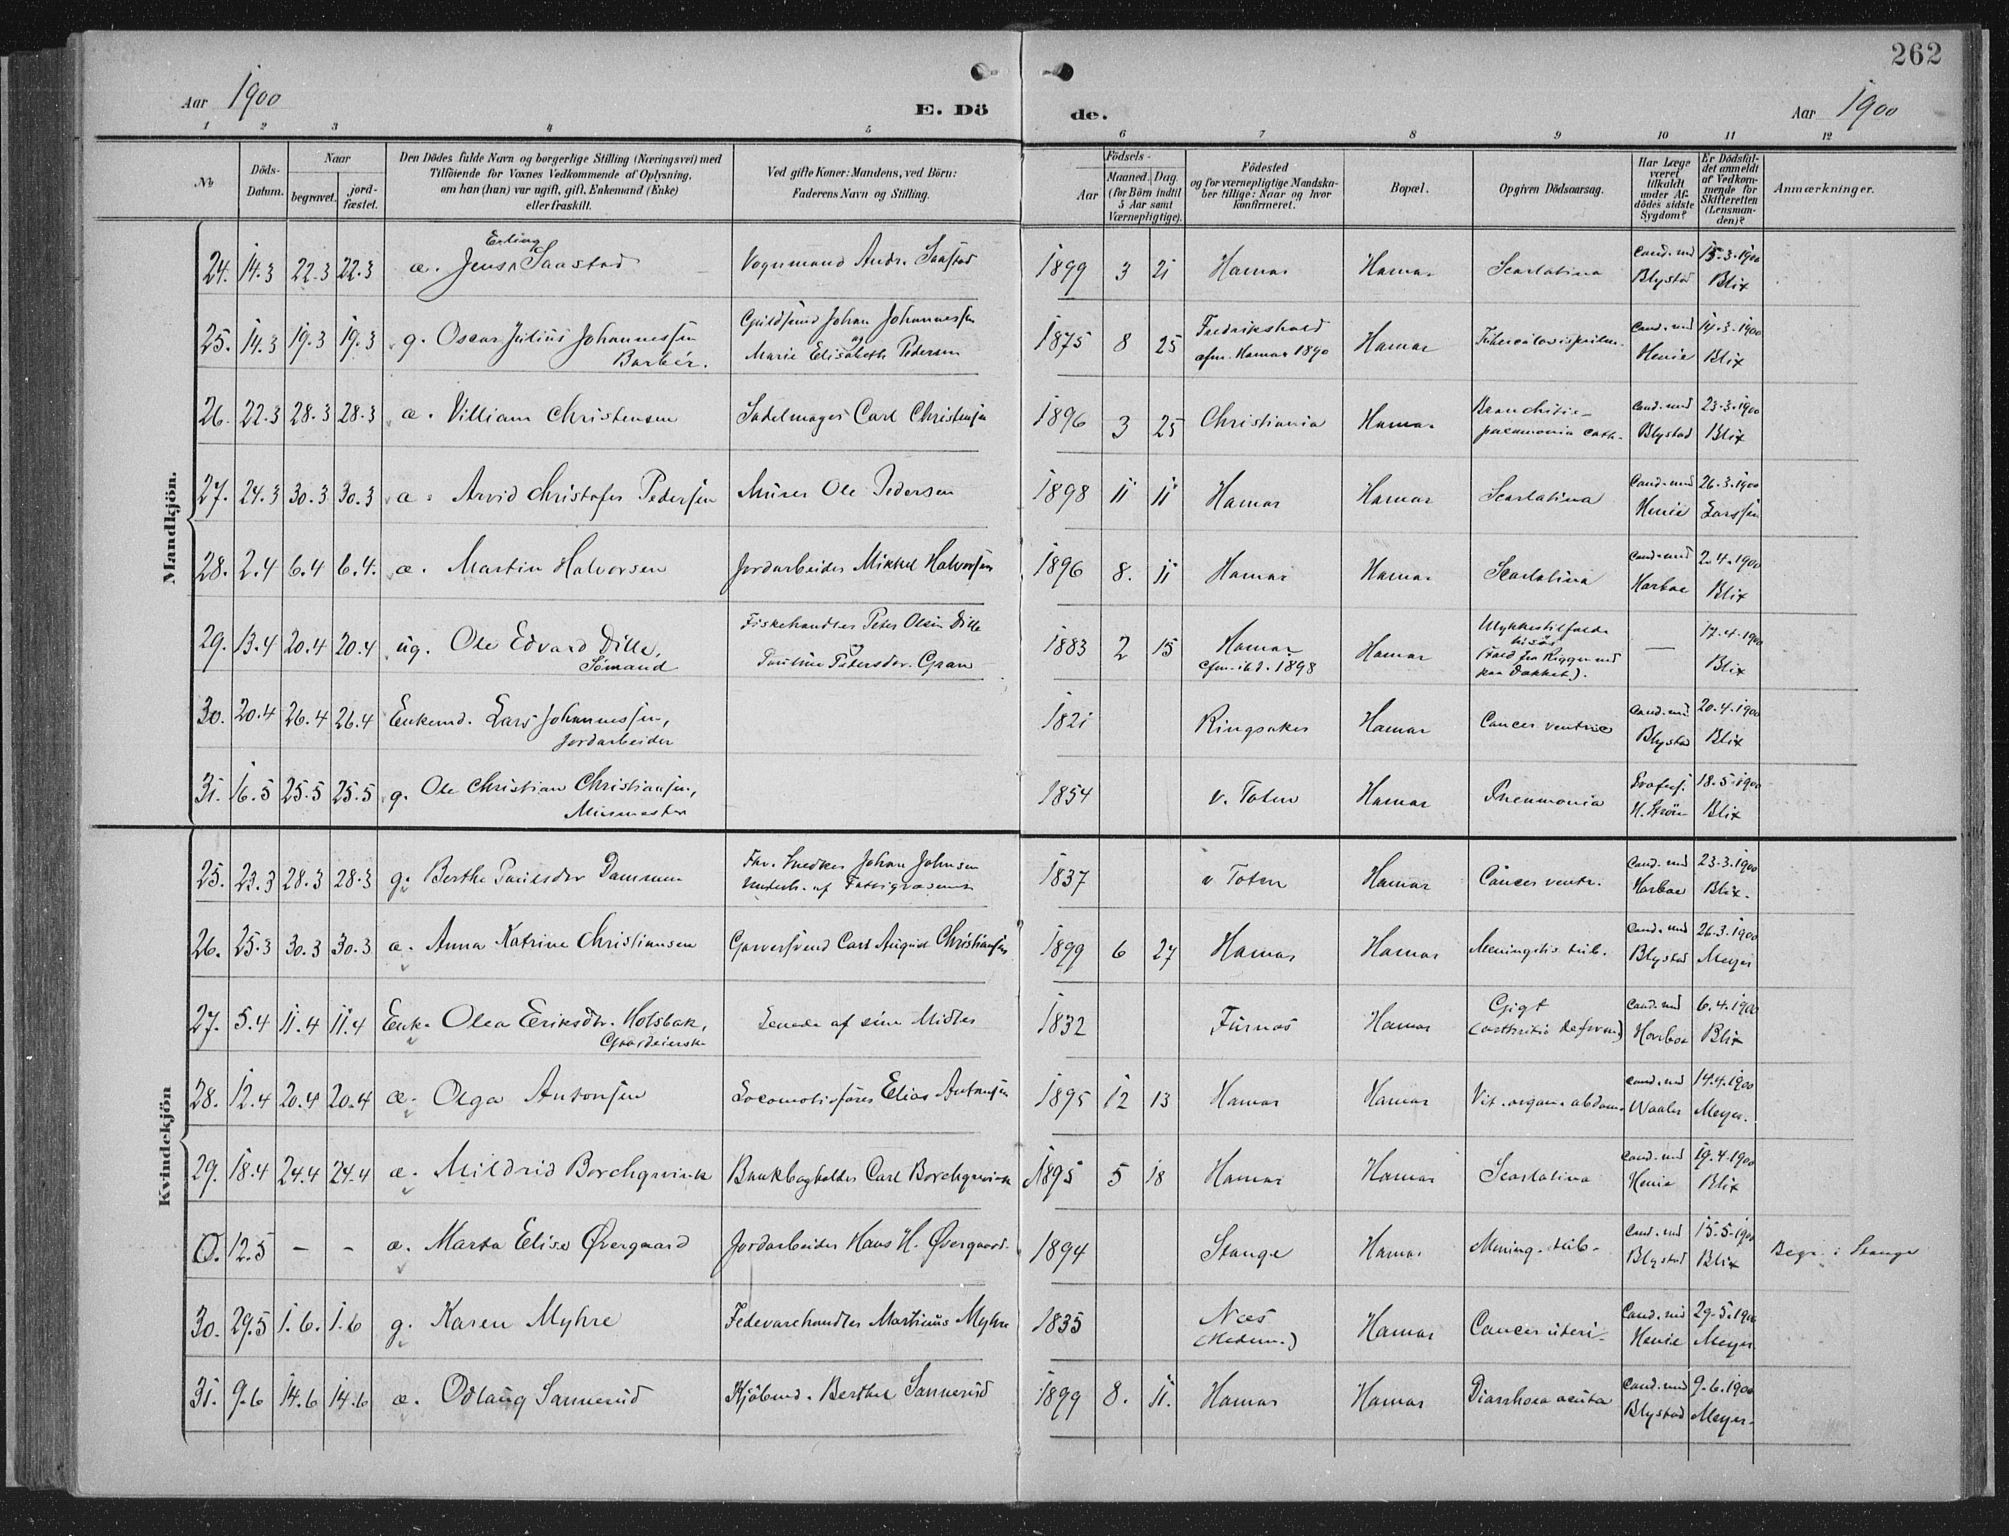 262
Aar 1900
E. Dö de.
Aar 1900
1 2 3 4 5 6 7 8 9 10 11 12
No
Döds-Datum.
Naar
begravet.
jord-fæstet.
Den Dödes fulde Navn og borgerlige Stilling (Næringsvei) med
Tilföiende for Voxnes Vedkommende af Oplysning,
om han (hun) var ugift, gift, Enkemand (Enke)
eller fraskilt.
Ved gifte Koner: Mandens, ved Börn:
Faderens Navn og Stilling.
Födsels-
Aar
Maaned. Dag.
(for Börn indtil
5 Aar samt
Værnepligtige).
Födested
og for værnepligtige Mandska-
ber tillige: Naar og hvor
konfirmeret.
Bopæl.
Opgiven Dödsaarsag.
Har Læge
været
tilkaldt
under Af-
dödes sidste
Sygdom?
Er Dödsfal-
det anmeldt
af Vedkom-
mende for
Skifteretten
(Lensman-
den)?
Anmærkninger.
Mandkjön.
24. 14.3 22.3 22.3 a. Jens Erling Saastad Vognmand Andr. Saastad 1899 3 21 Hamar Hamar Scarlatina Cand. med Blystad 15.3.1900 Blix
25. 14.3 19.3 19.3 g. Oscar Julius Johannessen Barbér. Guldsmed Johan Johannessen og Marie Elisabeth Pedersen 1875 8 25 Fredrikshald cfm. Hamar 1890 Hamar Cand. med Henie 14.3.1900 Blix
26. 22.3 28.3 28.3 a. Villiam Christensen Sadelmager Carl Christensen 1896 3 25 Christiania Hamar Bronchitis- pneumonia cath. Cand. med Blystad 23.3.1900 Blix
27. 24.3 30.3 30.3 a. Arvid Christofer Pedersen Murer Ole Pedersen 1898 11 11 Hamar Hamar Scarlatina Cand. med Henie 26.3.1900 Larssen
28. 2.4 6.4 6.4. a. Martin Halvorsen Jordarbeider Mikkel Halvorsen 1896 8. 11 Hamar Hamar Scarlatina Cand. med Harboe 2.4.1900 Blix
29. 13.4 20.4 20.4 ug. Ole Edvard Dille, Sömand Fiskehandler Peter Olsen Dille og Pauline Pedersdtr. Gran 1883 2 15 Hamar cfm. ibd. 1898 Hamar Ulykkestilfælde tilsös (Fald fra Riggen ned paa Dækket). — 17.4.1900 Blix
30. 20.4 26.4 26.4 Enkemd. Lars Johannessen, Jordarbeider 1821 Ringsaker Hamar Cancer ventric Cand. med Blystad 20.4.1900 Blix
31. 16.5 25.5 25.5 g. Ole Christian Christiansen, Murmester 1854 v. Toten Hamar Pneumonia Profess. H. Ström 18.5.1900 Blix
Kvindekjön
25. 23.3 28.3 28.3 g. Berthe Paulsdtr Dammen Fhv. Snedker Johan Johnsen Underh. af Fattigvæsenet 1837 v Toten Hamar Cancer ventr. Cand. med Harboe 23.3.1900 Blix.
26. 25.3 30.3 30.3 a. Anna Katrine Christiansen Garversvend Carl August Christiansen 1899 6 27 Hamar Hamar Meningitis tub. Cand. med Blystad 26.3.1900 Meyer
27. 5.4 11.4 11.4 Enke Olea Eriksdtr. Holsbak, Gaardeierske Levede af sine Midler 1832 Furnæs Hamar Gigt (arthritis deform) Cand. med Harboe 6.4.1900 Blix
28. 12.4 20.4 20.4 a. Olga Antonsen Locomotivförer Elias Antonsen 1895 12 13 Hamar Hamar Vit. organ. abdom. Cand. med Waaler 14.4.1900 Meyer.
29. 18.4 24.4 24.4 a. Mildrid Borchgrevink Bankbogholder Carl Borchgrevink 1895 5 18 Hamar Hamar Scarlatina Cand. med Henie 19.4.1900 Blix
O. 12.5 - - a. Marta Elise Øvergaard Jordarbeider Hans H. Øvergaard. 1894 Stange Hamar Mening. tub. Cand. med Blystad 15.5.1900 Blix Begr. i Stange
30. 29.5 1.6. 1.6 g. Karen Myhre Fedevarehandler Martinius Myhre 1835 Næs (Hedem.) Hamar Cancer uteri. Cand. med Henie 29.5.1900 Meyer
31. 9.6 14.6 14.6 a. Odlaug Sannerud Kjöbmd. Berthel Sannerud 1899 8. 11. Hamar Hamar Diarrhoea acuta Cand. med Blystad 9.6.1900 Meyer.